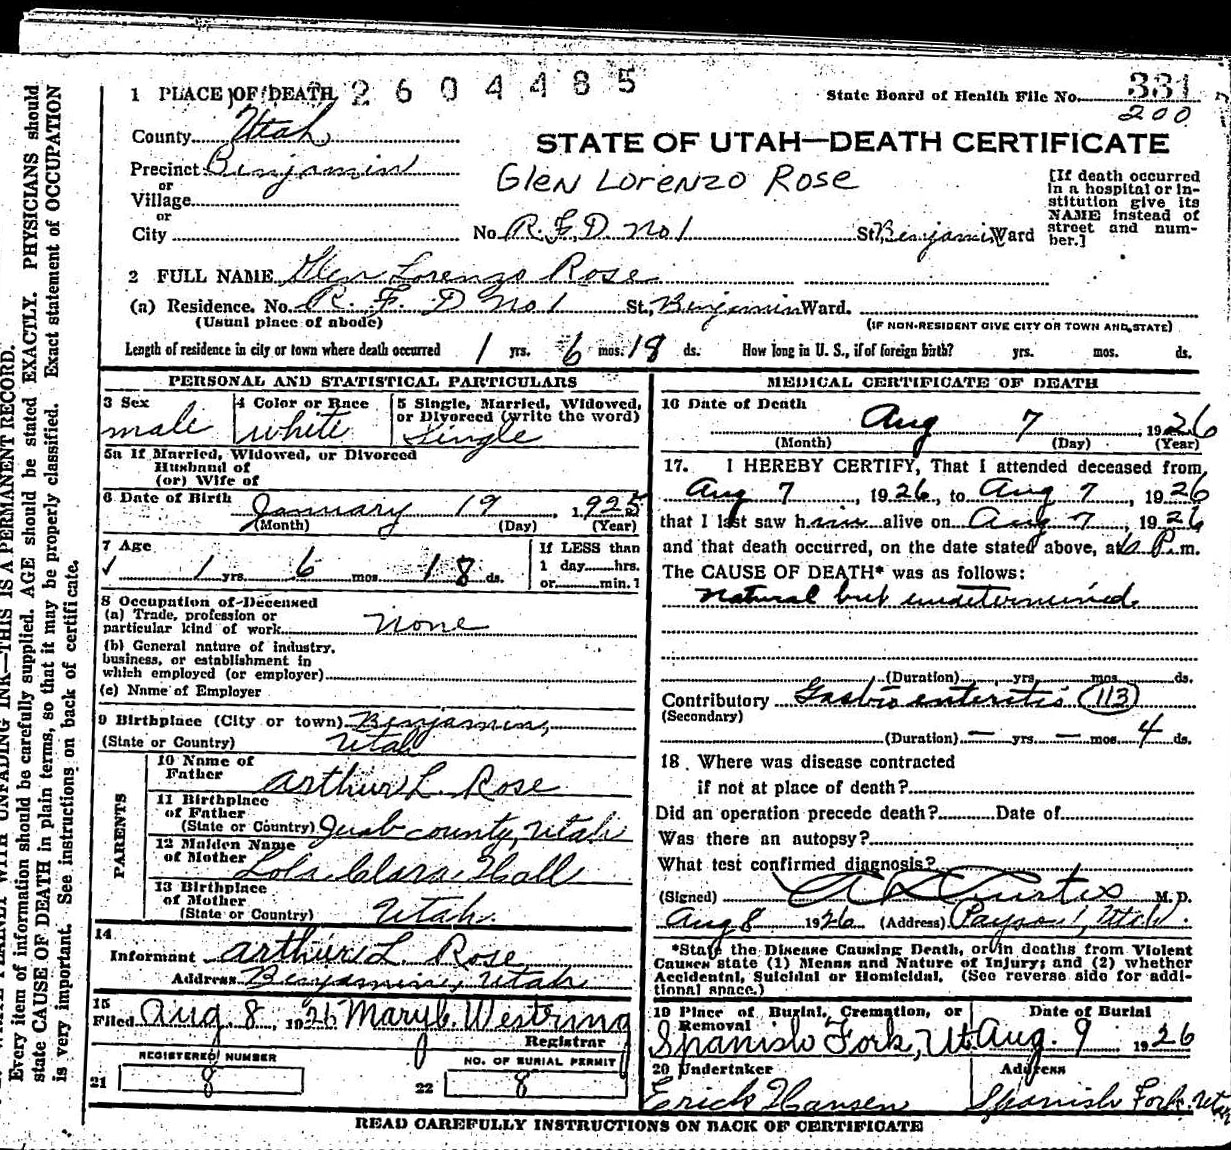 1 PLACE OF DEATH 2604485
State Board of Health File No. 331
200
County Utah
STATE OF UTAH—DEATH CERTIFICATE
Precinct Benjamin
Glen Lorenzo Rose
or
Village
or
City
No. R.F.D. No 1 St. Benjamin Ward
[If death occurred
in a hospital or in-
stitution give its
NAME instead of
street and num-
ber.]
2 FULL NAME Glen Lorenzo Rose
(a) Residence. No. R. F. D No 1 St., Benjamin Ward.
(Usual place of abode)
(IF NON-RESIDENT GIVE CITY OR TOWN AND STATE)
Length of residence in city or town where death occurred 1 yrs. 6 mos. 18 ds. How long in U. S., if of foreign birth? yrs. mos. ds.
PERSONAL AND STATISTICAL PARTICULARS
3 Sex
male
4 Color or Race
white
5 Single, Married, Widowed,
or Divorced (write the word)
Single
5a If Married, Widowed, or Divorced
Husband of
(or) Wife of
6 Date of Birth
January 19, 1925
(Month) (Day) (Year)
7 Age
1 yrs. 6 mos. 18 ds.
If LESS than
1 day hrs.
or min.?
8 Occupation of Deceased
(a) Trade, profession or
particular kind of work none
(b) General nature of industry,
business, or establishment in
which employed (or employer)
(c) Name of Employer
9 Birthplace (City or town) Benjamin,
(State or Country) Utah
PARENTS
10 Name of
Father Arthur L. Rose
11 Birthplace
of Father
(State or Country) Juab county, Utah
12 Maiden Name
of Mother Lola Clara Hall
13 Birthplace
of Mother
(State or Country) Utah.
14
Informant Arthur L. Rose
Address Benjamin, Utah
15
Filed Aug. 8, 1926 Mary C. Westring
Registrar
REGISTERED NUMBER
21 8
NO. OF BURIAL PERMIT
22 8
MEDICAL CERTIFICATE OF DEATH
16 Date of Death
Aug 7, 1926
(Month) (Day) (Year)
17. I HEREBY CERTIFY, That I attended deceased from
Aug 7, 1926, to Aug 7, 1926
that I last saw him alive on Aug 7, 1926
and that death occurred, on the date stated above, at 6 P.m.
The CAUSE OF DEATH* was as follows:
Natural but undetermined
(Duration) yrs. mos. ds.
Contributory Gastro enteritis (113)
(Secondary)
(Duration) — yrs. — mos. 4 ds.
18. Where was disease contracted
if not at place of death?
Did an operation precede death? Date of
Was there an autopsy?
What test confirmed diagnosis?
(Signed) A L Curtis M. D.
Aug 8 1926 (Address) Payson, Utah.
*State the Disease Causing Death, or in deaths from Violent
Causes state (1) Means and Nature of Injury; and (2) whether
Accidental, Suicidal or Homicidal. (See reverse side for addi-
tional space.)
19 Place of Burial, Cremation, or
Removal
Spanish Fork, Ut.
Date of Burial
Aug. 9 1926
20 Undertaker
Erick Hansen
Address
Spanish Fork. Utah
READ CAREFULLY INSTRUCTIONS ON BACK OF CERTIFICATE
WITH UNFADING INK—THIS IS A PERMANENT RECORD.
Every item of information should be carefully supplied. AGE should be stated EXACTLY. PHYSICIANS should
state CAUSE OF DEATH in plain terms, so that it may be properly classified. Exact statement of OCCUPATION
is very important. See instructions on back of certificate.